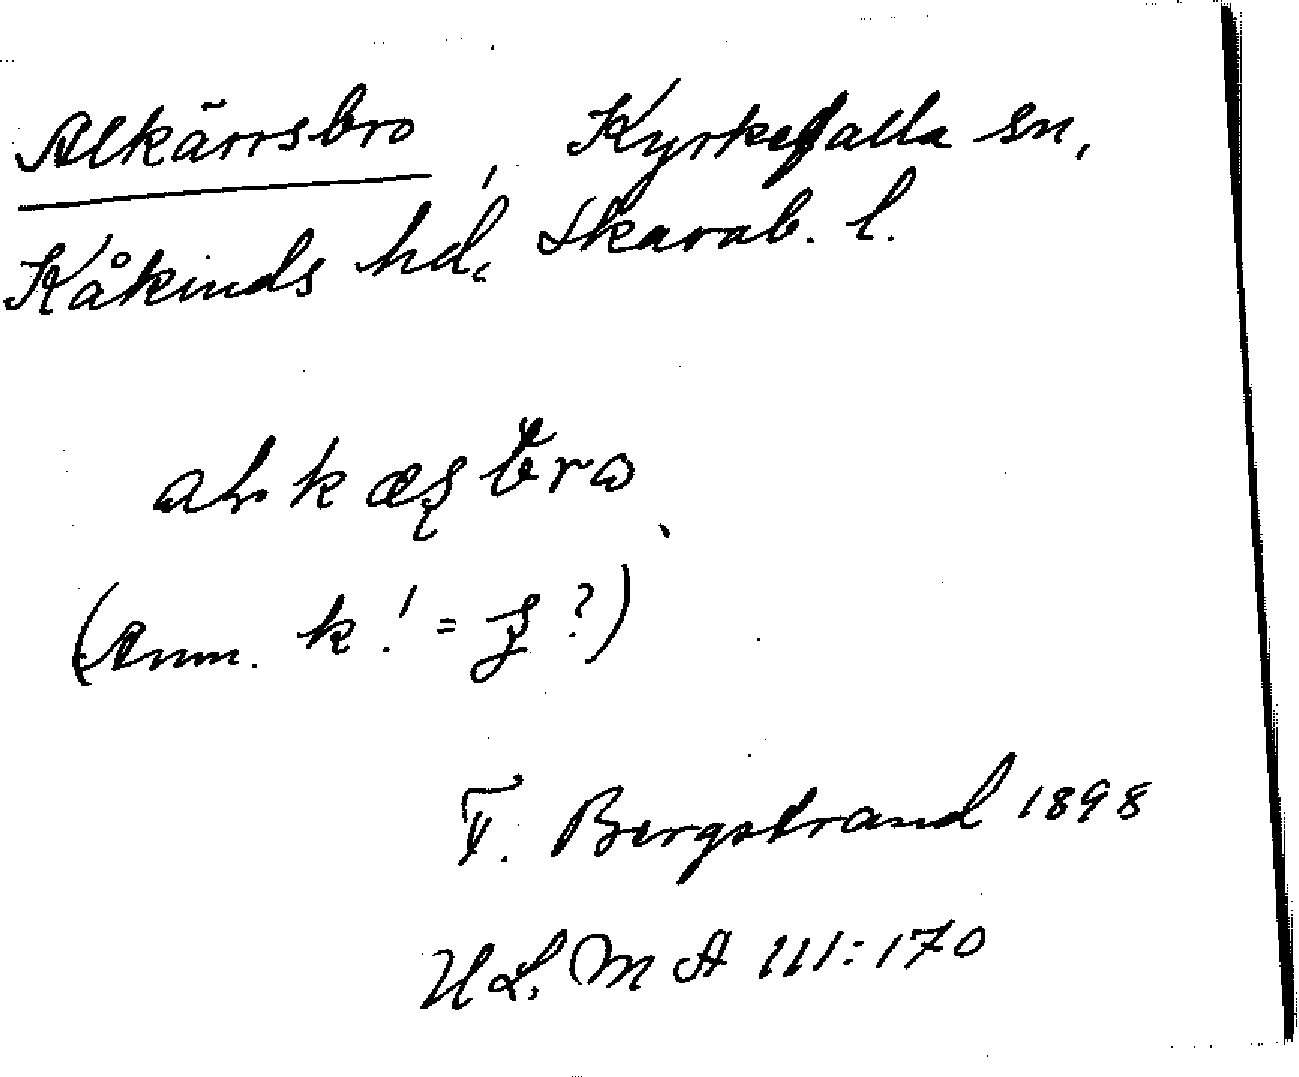 Alkärrsbro, Kyrkefalla sn,
Kåkinds hd, Skarab. l.
(Anm. k! = ?)
F. Bergstrand 1898
ULMA 111:170